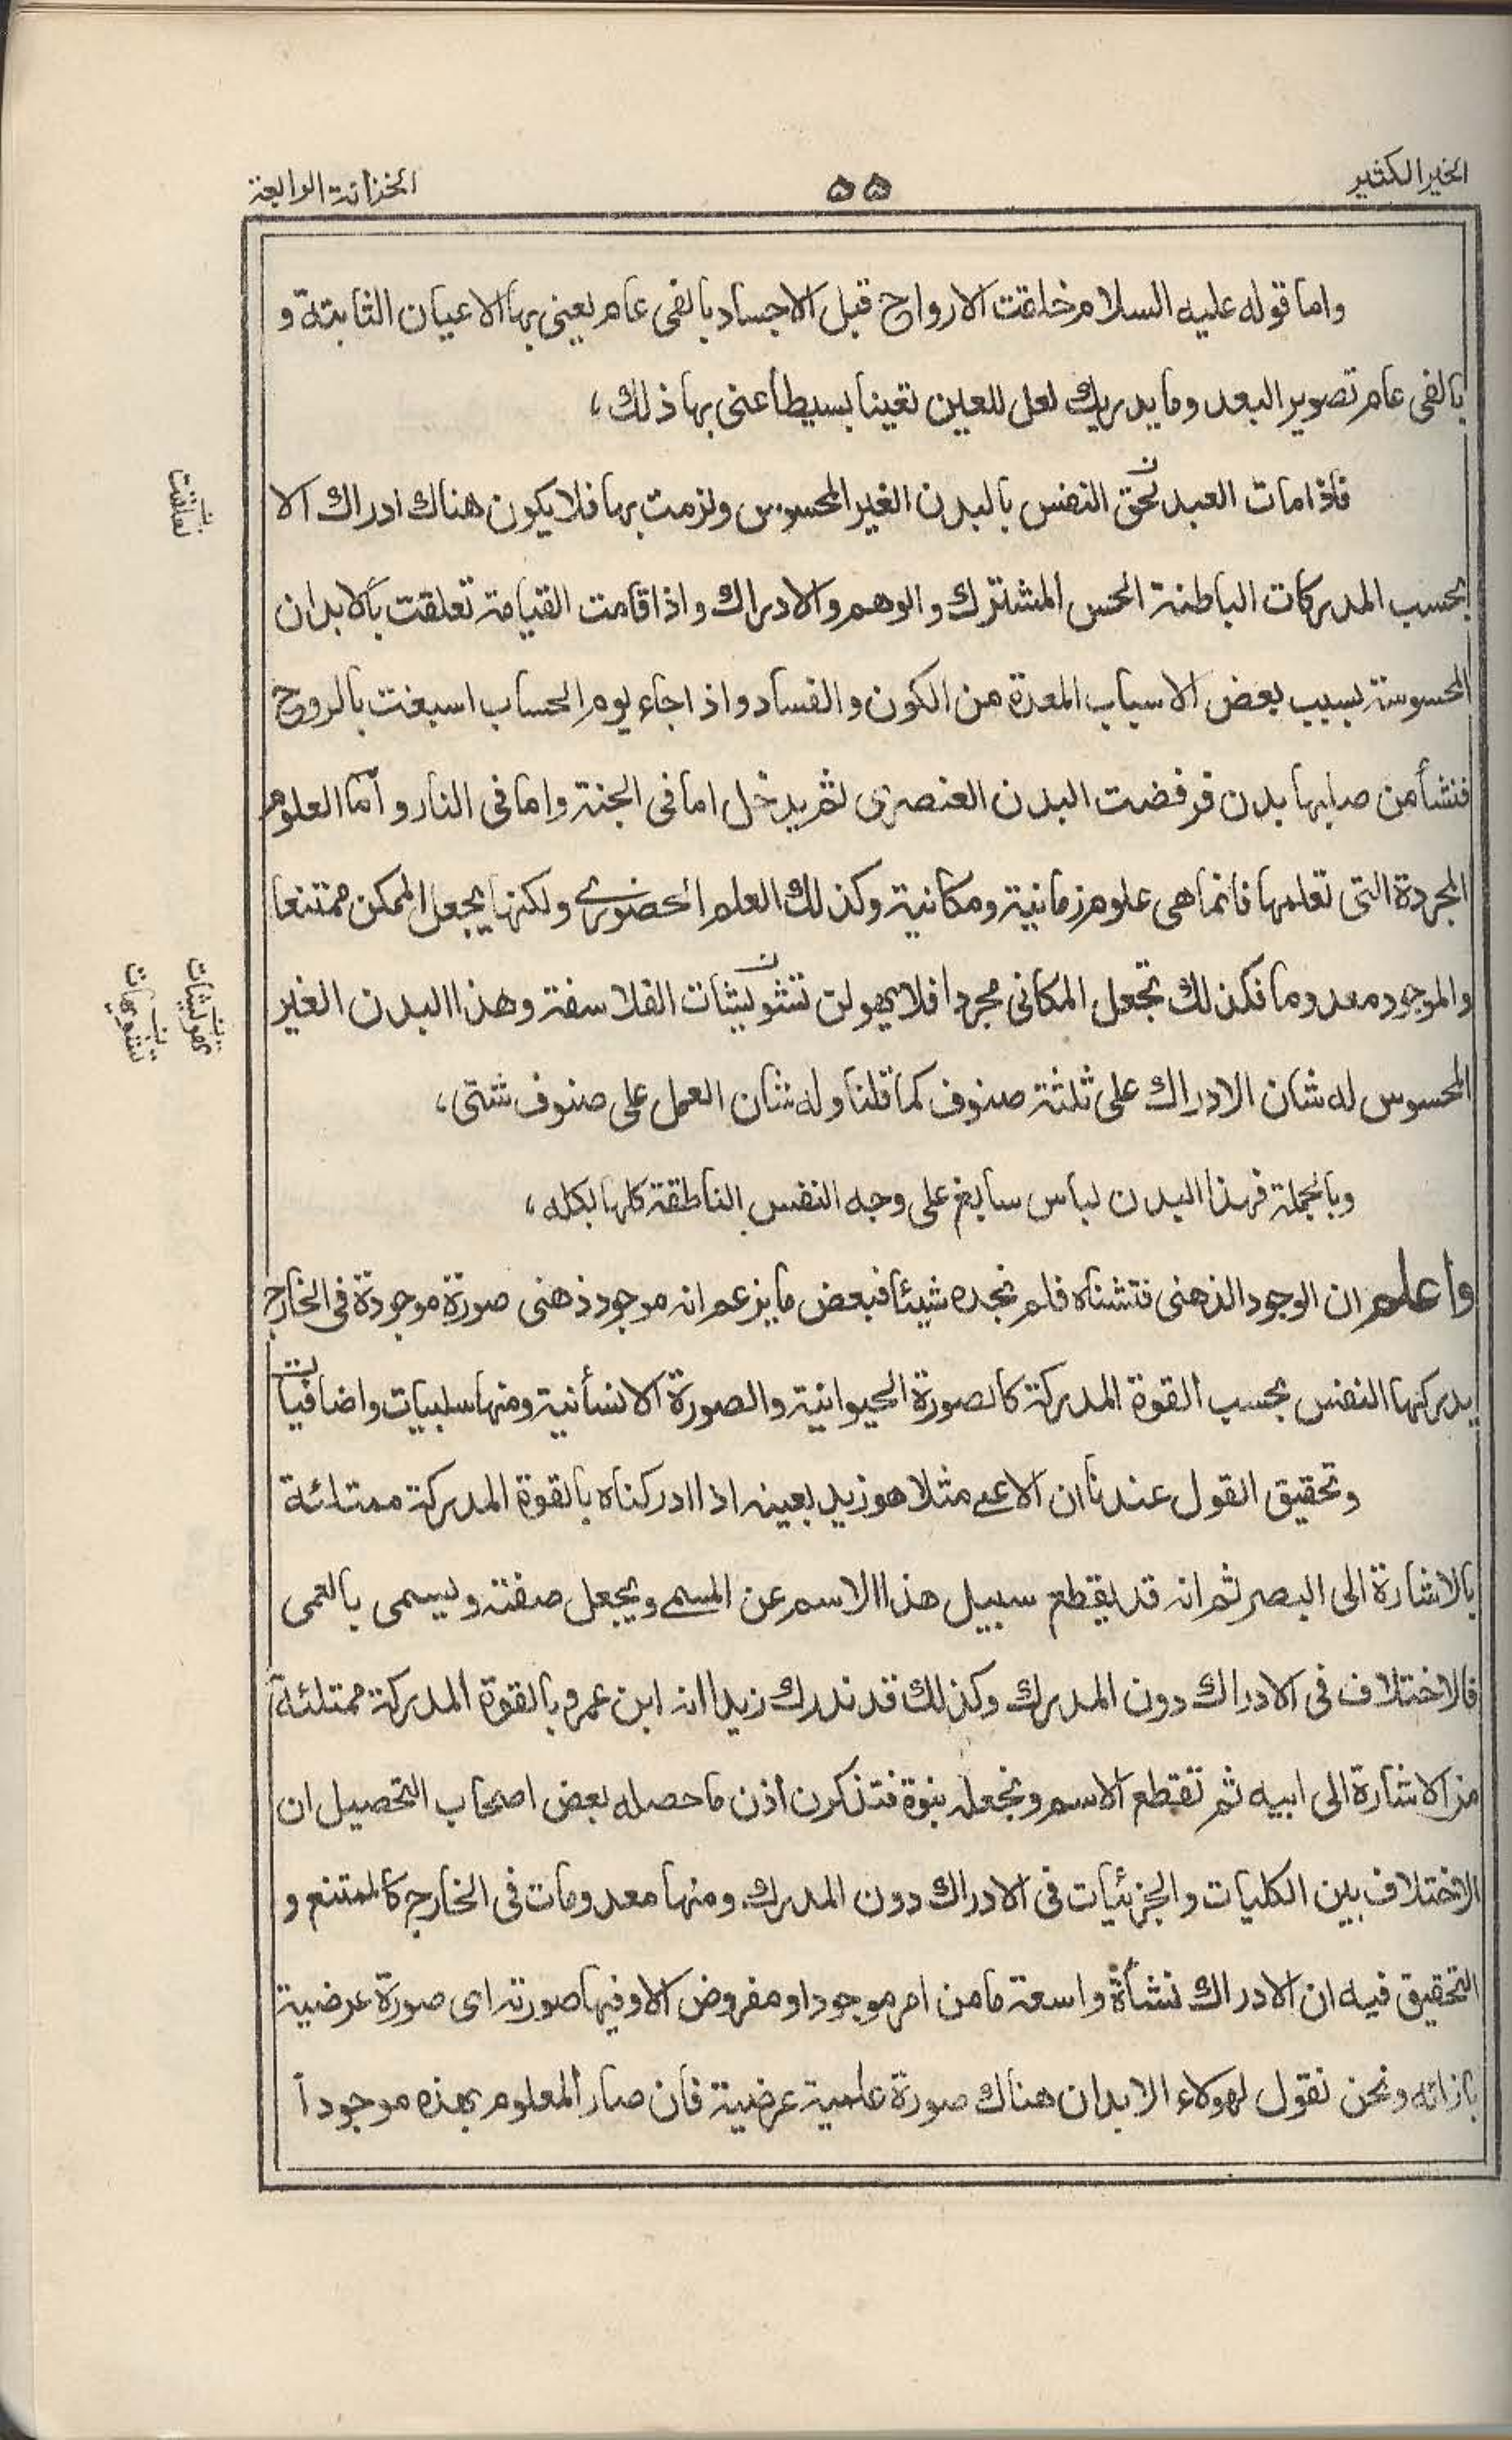 الخير الكثير
٥٥
الخزانة الرابعة
واما قوله عليه السلام خلقت الارواح قبل الاجساد بالفى عام يعنى بها الاعيان الثابتة و
بالفى عام تصوير البعد وما يدريك لعل للعين تعينا بسيطا عنى بها ذلك،
فاذا مات العبد لحق النفس بالبدن الغير المحسوس ولزمت بها فلا يكون هناك ادراك الا
بحسب المدركات الباطنة الحس المشترك والوهم والادراك واذا قامت القيامة تعلقت بالابدان
المحسوسة بسبب بعض الاسباب المعدة من الكون والفساد واذا جاء يوم الحساب اسبغت بالروح
فنشأ من صلبها بدن فرفضت البدن العنصرى ثم يدخل اما فى الجنة واما فى النار و اما العلوم
المجردة التى تعلمها فانما هى علوم زمانية ومكانية وكذلك العلم الحضورى ولكنها يجعل الممكن ممتنعا
والموجود معدوما فكذلك تجعل المكانى مجردا فلا يهولن الفلاسفة وهذا البدن الغير
المحسوس له شان الادراك على ثلثة صنوف كما قلنا وله شان العمل على صنوف شتى،
وبالجملة فهذا البدن لباس سابغ على وجه النفس الناطقة كلها بكله،
واعلم ان الوجود الذهنى فتشناه فلم نجده شيئا فبعض ما يزعم انه موجود ذهنى صورة موجودة فى الخارج
يدركها النفس بحسب القوة المدركة كالصورة الحيوانية والصورة الانسانية ومنها سلبيات واضافيات
وتحقيق القول عندنا ان الاعمى مثلا هو زيد بعينه اذا ادركناه بالقوة المدركة ممتلئة
بالاشارة الى البصر ثم انه قد يقطع سبيل هذا الاسم عن المسمى ويجعل صفته ويسمى بالعمى
فالاختلاف فى الادراك دون المدرك وكذلك قد ندرك زيدا انه ابن عمرو بالقوة المدركة ممتلئة
من الاشارة الى ابيه ثم تقطع الاسم ونجعله بنوة فتذكرن اذن ما حصله بعض اصحاب التحصيل ان
الاختلاف بين الكليات والجزئيات فى الادراك دون المدرك ومنها معدومات فى الخارج كالممتنع و
التحقيق فيه ان الادراك نشأة واسعة ما من امر موجود او مفروض الا وفيها صورته اى صورة عرضية
بازائه ونحن نقول لهولاء الابدان هناك صورة علمية عرضية فان صار المعلوم بهذه موجودا